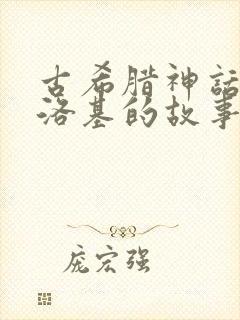 古希腊神话
洛基的故事
庞宏强